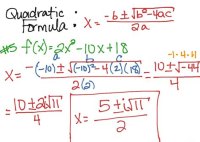 Quadratic Formula: X = -b ± √b² - 4ac / 2a
#5 f(x) = 2x² - 10x + 18
a b c
X = -(-10) ± √(-10)² - 4(2)(18) / 2(2) = 10 ± √-44 / 4
-1·4·11
= 10 ± 2i√11 / 4
X = 5 ± i√11 / 2